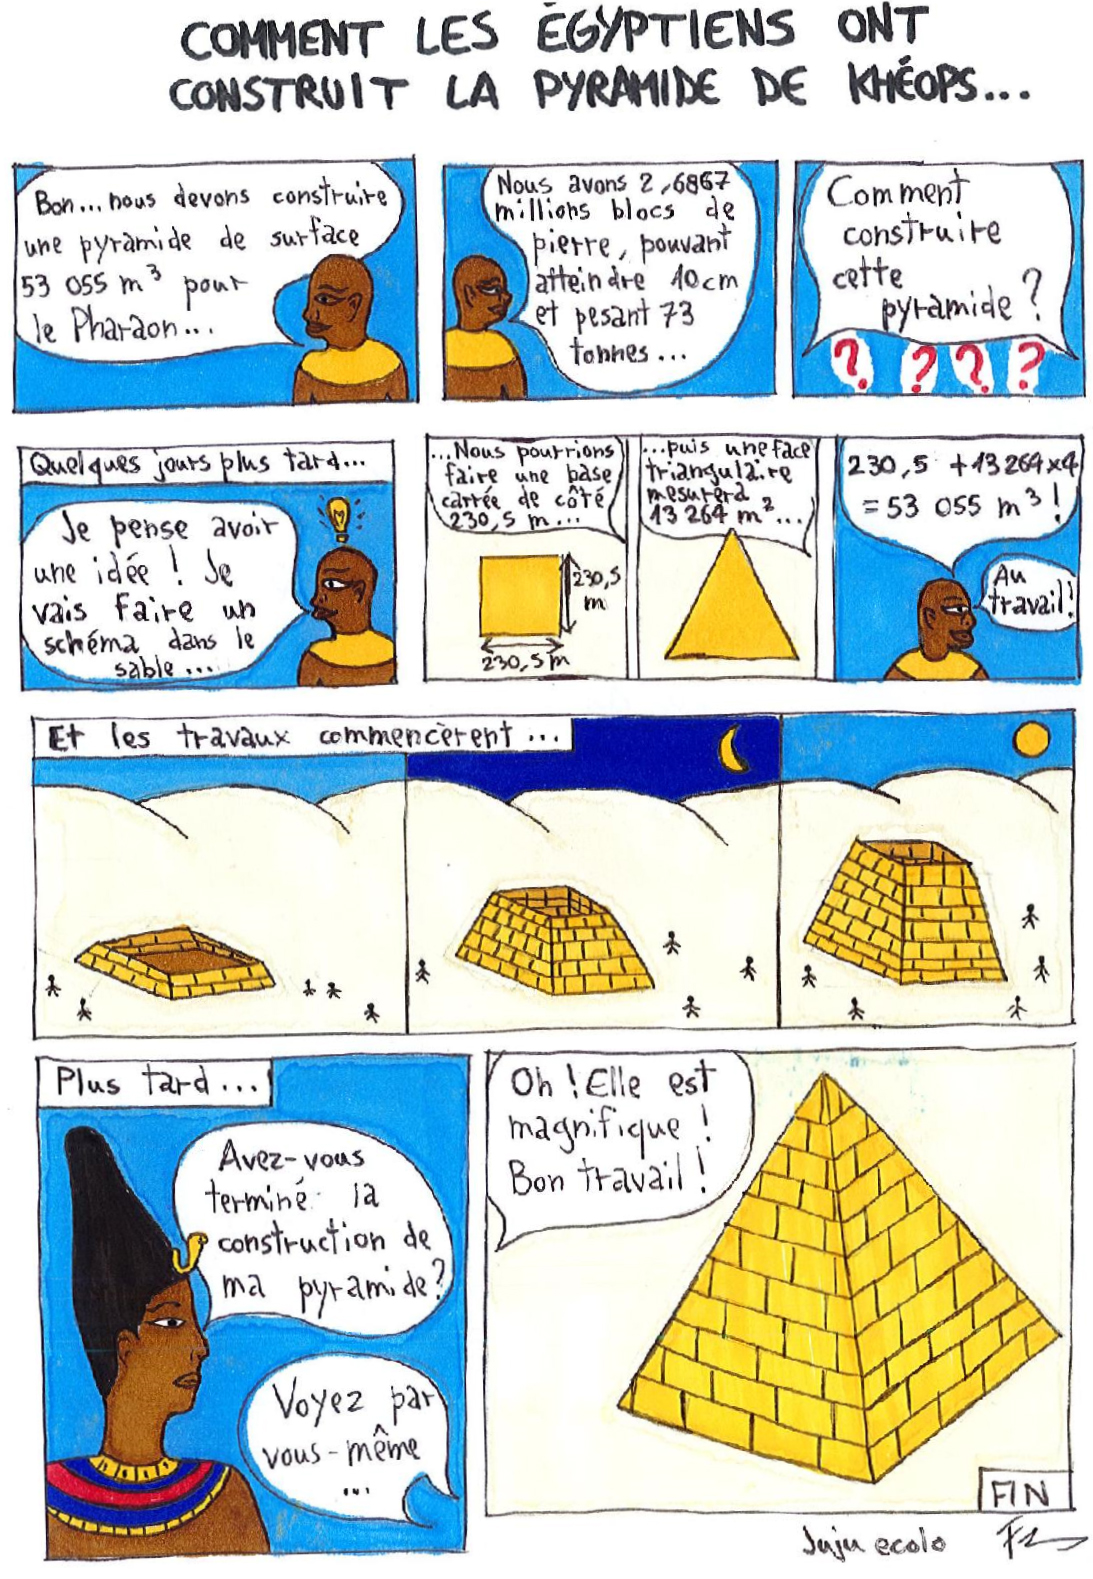 COMMENT LES ÉGYPTIENS ONT
CONSTRUIT LA PYRAMIDE DE KHÉOPS...
Bon...nous devons construire
une pyramide de surface
53 055 m³ pour
le Pharaon...
Nous avons 2,6867
millions blocs de
pierre, pouvant
atteindre 10cm
et pesant 73
tonnes...
Comment
construire
cette
pyramide?
? ? ? ?
Quelques jours plus tard...
Je pense avoir
une idée ! Je
vais faire un
schéma dans le
sable...
...Nous pourrions
faire une base
carrée de côté
230,5 m...
230,5
m
230,5 m
...puis une face
triangulaire
mesurera
13 264 m²...
230,5 +13 264×4
= 53 055 m³ !
Au
travail!
Et les travaux commencèrent...
Plus tard...
Avez-vous
terminé la
construction de
ma pyramide?
Voyez par
vous-même
...
Oh ! Elle est
magnifique !
Bon travail !
FIN
Juju ecolo